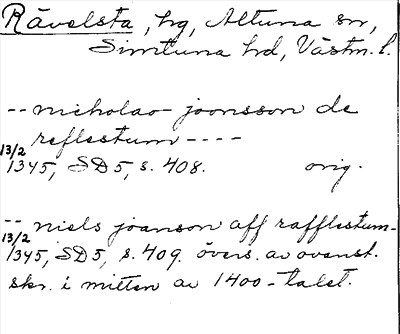 Rävelsta, hg, Altuna sn,
Simtuna hd, Västm. l.
-- nicholao joonsson de
reflestum ----
13/2 1345, SD 5, s. 408. orig.
-- niels joanson aff rafflestum-
13/2 1345, SD 5, s. 409. övers. av ovanst.
skr. i mitten av 1400-talet.